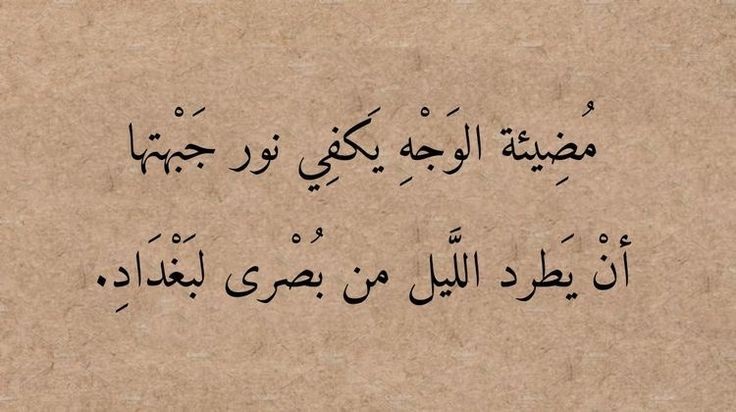 مُضِيئة الوَجْهِ يَكفِي نور جَبْهتها
أنْ يَطرد اللَّيل من بُصْرى لبَغْدَادِ.